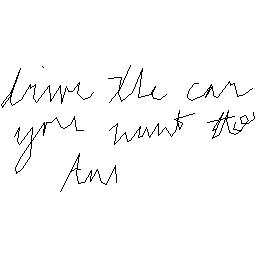 drive the car
you want the